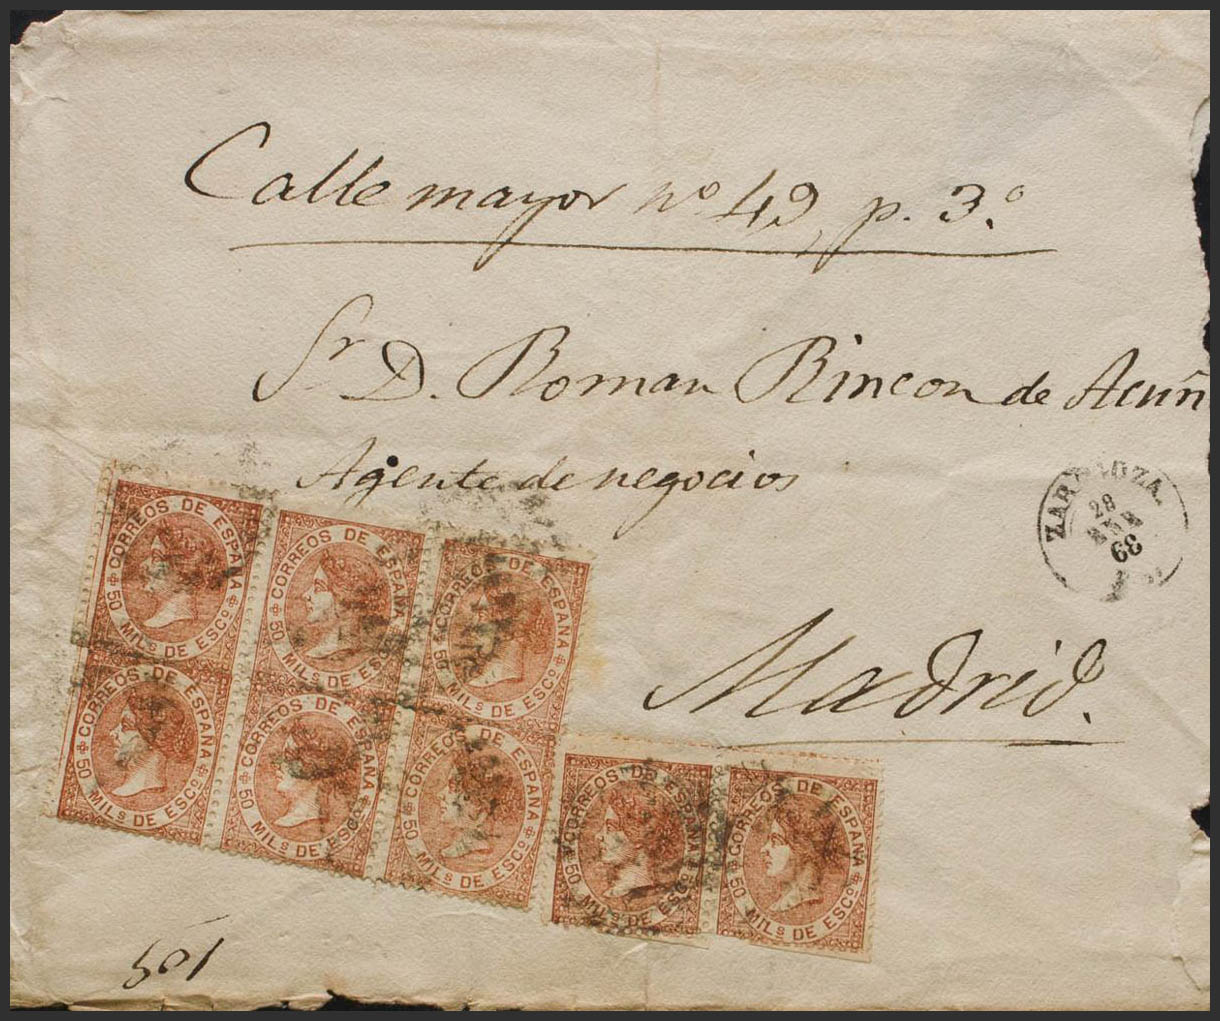 Calle mayor nº 49, p. 3.º
Sr D. Roman Rincon de Acuñ
Agente de negocios
ZARAGOZA.
28
ENE
68
Madrid.
CORREOS DE ESPAÑA
50 MILS DE ESCO
CORREOS DE ESPAÑA
50 MILS DE ESCO
CORREOS DE ESPAÑA
50 MILS DE ESCO
CORREOS DE ESPAÑA
50 MILS DE ESCO
CORREOS DE ESPAÑA
50 MILS DE ESCO
CORREOS DE ESPAÑA
50 MILS DE ESCO
CORREOS DE ESPAÑA
50 MILS DE ESCO
CORREOS DE ESPAÑA
50 MILS DE ESCO
501